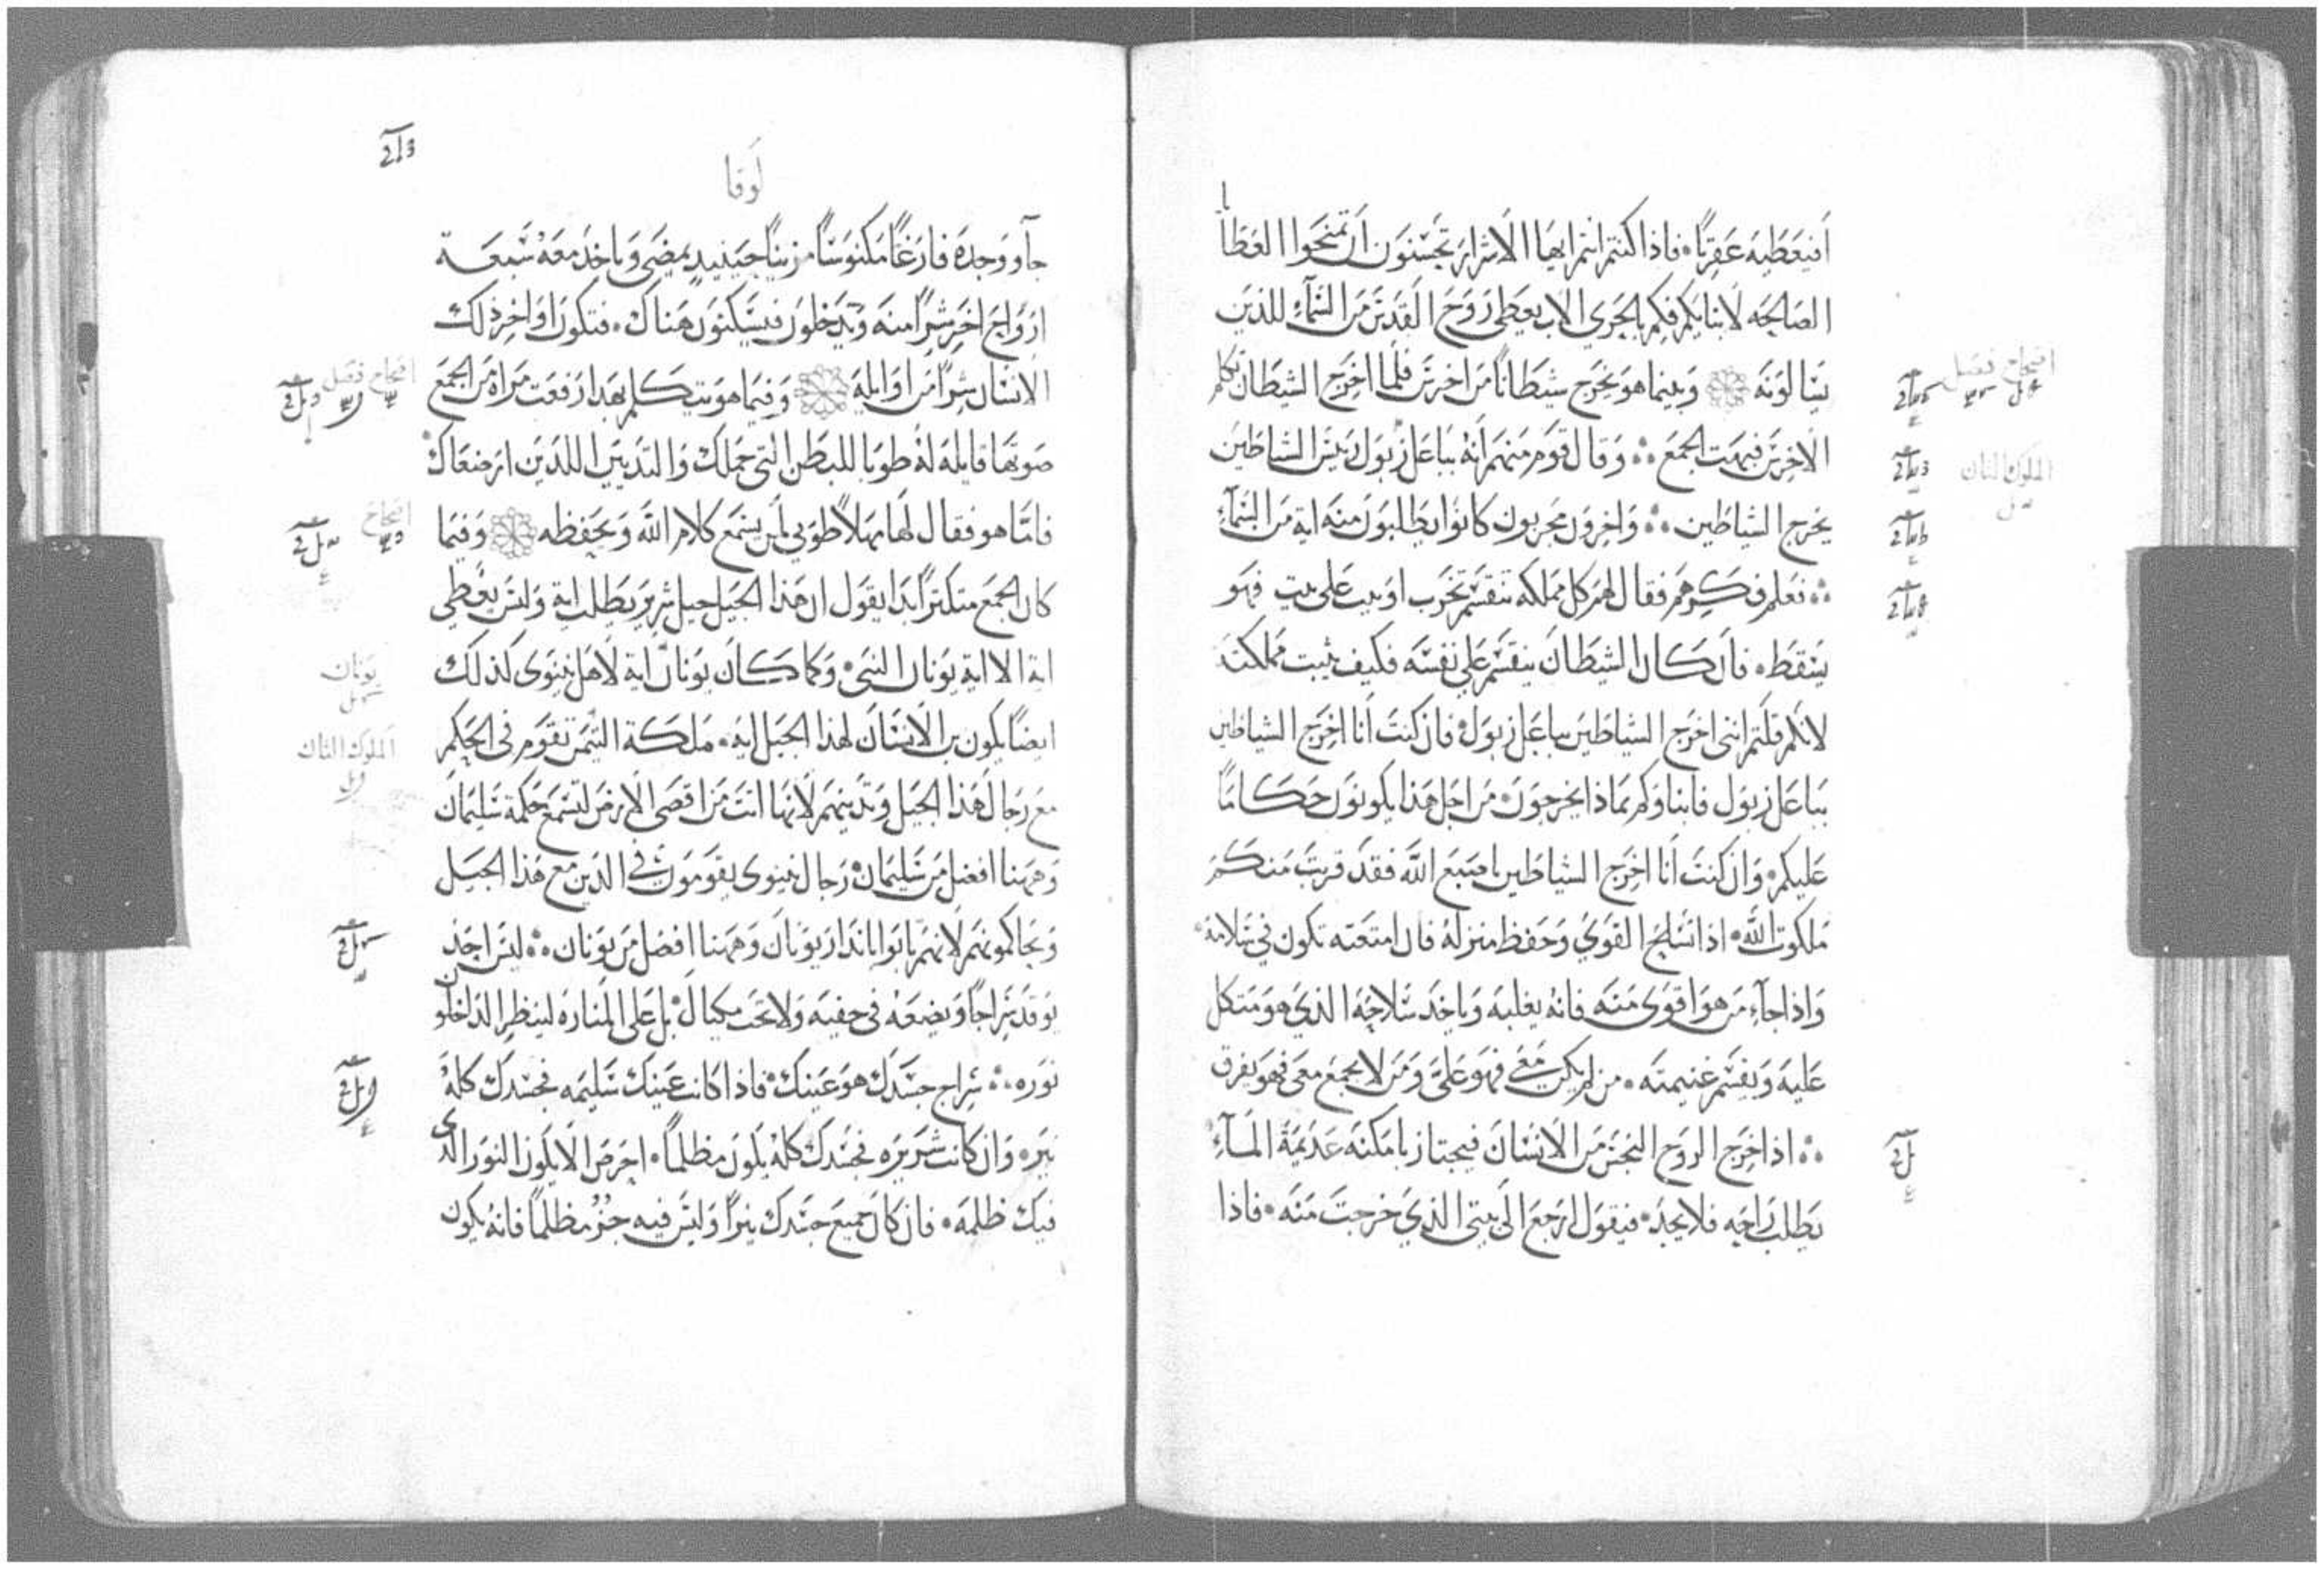 افيعطيه عقربًا فاذا كنتم انتم ايها الاشرار تحسنون ان تمنحوا العطايا
الصالحه لابنايكم فكم بالحري الاب يعطي روح القدس من السمآء للذين
يسالونه وبينما هو يخرج شيطانًا من اخرس فلما اخرج الشيطان تكلم
الاخرس فبهت الجمع وقال قوم منهم انه بباعل زبول ريس الشياطين
يخرج الشياطين واخرون مجربون كانوا يطلبون منه اية من السمآء
فعلم فكرهم فقال لهم كل مملكه تنقسم تخرب او بيت على بيت فهو
يسقط فان كان الشيطان ينقسم على نفسه فكيف يثبت مملكته
لانكم قلتم انني اخرج الشياطين بباعل زبول فان كنت أنا اخرج الشياطين
بباعل زبول فابناوكم بماذا يخرجون من اجل هذا يكونون حكامًا
عليكم وان كنت أنا اخرج الشياطين باصبع الله فقد قربت منكم
ملكوت الله اذا تسلح القوي وحفظ منزله فان امتعته تكون في سلامة
واذا جآء من هو اقوى منه فانه يغلبه وياخد سلاحه الذي هو متكل
عليه ويقسم غنيمته من لم يكن معي فهو علي ومن لا يجمع معي فهو يفرق
اذا خرج الروح النجس من الانسان فيجتاز بامكنه عديمة المآء
يطلب راحه فلا يجد فيقول ارجع الى بيتي الذي خرجت منه فاذا
افتحاح فصل
الملوك الثان
لوقا
جآ ووجده فارغًا مكنوسًا مزينًا حينيد يمضي وياخد معه سبعة
ارواح اخر شرًا منه ويدخلون فيسكنون هناك فتكون اواخر ذلك
الانسان شرًا من اوايله وفيما هو يتكلم بهدا رفعت مراة من الجمع
صوتها قايلة له طوبا للبطن التي حملك والثديين اللذين ارضعاك
فامّا هو فقال لها مهلاً طوبي لمن يسمع كلام الله ويحفظه وفيما
كان الجمع متكثرًا بدا يقول ان هذا الجيل جيل شرير يطلب اية وليس يعطي
اية الا اية يونان النبي وكما كان يونان اية لاهل نينوى كذلك
ايضًا يكون بن الانسان لهذا الجيل اية ملكة التيمن تقوم في الحكم
مع رجال هذا الجيل وتدينهم لانها اتت من اقصى الارض لتسمع حكمة سليمان
وههنا افضل من سليمان رجال نينوى يقومون في الدين مع هذا الجيل
ويحاكمونهم لانهم تابوا بانذار يونان وههنا افضل من يونان ليس احد
يوقد سراجًا ويضعه في خفيه ولا تحت مكيال بل على المناره لينظر الداخلون
نوره سراج جسدك هو عينك فاذا كانت عينك سليمه فجسدك كله
نير وان كانت شريره فجسدك كله يكون مظلمًا احرص الا يكون النور الدي
فيك ظلمه فان كان جميع جسدك نيرًا وليس فيه جزؤ مظلمًا فانه يكون
افتحاح فصل
افتحاح
يونان
الملوك الثان